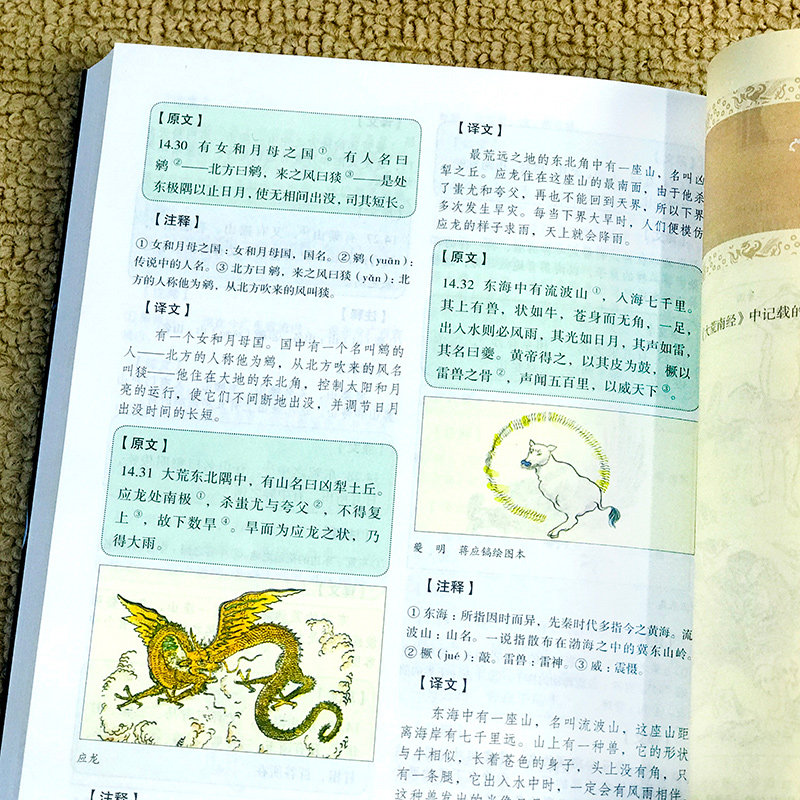 【原文】
14.30 有女和月母之国①。有人名曰
鹓②——北方曰鹓，来之风曰㺂③——是处
东极隅以止日月，使无相间出没，司其短长。
【注释】
①女和月母之国：女和月母国，国名。②鹓（yuān）：
传说中的人名。③北方曰鹓，来之风曰㺂（yǎn）：北
方的人称他为鹓，从北方吹来的风叫㺂。
【译文】
有一个女和月母国。国中有一个名叫鹓的
人——北方的人称他为鹓，从北方吹来的风名
叫㺂——他住在大地的东北角，控制太阳和月
亮的运行，使它们不间断地出没，并调节日月
出没时间的长短。
【原文】
14.31 大荒东北隅中，有山名曰凶犁土丘。
应龙处南极①，杀蚩尤与夸父②，不得复
上③，故下数旱④。旱而为应龙之状，乃
得大雨。
应龙
【注释】
【译文】
最荒远之地的东北角中有一座山，名叫凶
犁之丘。应龙住在这座山的最南面，由于他杀
了蚩尤和夸父，再也不能回到天界，所以下界
多次发生旱灾。每当下界大旱时，人们便模仿
应龙的样子求雨，天上就会降雨。
【原文】
14.32 东海中有流波山①，入海七千里。
其上有兽，状如牛，苍身而无角，一足，
出入水则必风雨，其光如日月，其声如雷，
其名曰夔。黄帝得之，以其皮为鼓，橛以
雷兽之骨②，声闻五百里，以威天下③。
夔 明 蒋应镐绘图本
【注释】
①东海：所指因时而异，先秦时代多指今之黄海。流
波山：山名。一说指散布在渤海之中的冀东山岭。
②橛（jué）：敲。雷兽：雷神。③威：震慑。
【译文】
东海中有一座山，名叫流波山，这座山距
离海岸有七千里远。山上有一种兽，它的形状
与牛相似，长着苍色的身子，头上没有角，只
有一条腿，它出入水中时，一定会有风雨相伴
《大荒南经》中记载的